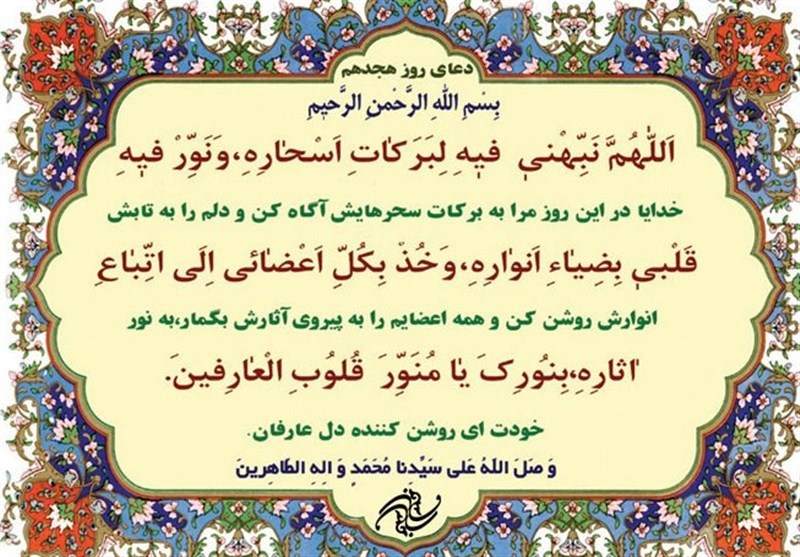 دعای روز هجدهم
بِسْمِ اللهِ الرَّحْمنِ الرَّحیمِ
اَللّهُمَّ نَبِّهْني فیهِ لِبَرَکٰاتِ اَسْحٰارِهِ،وَنَوِّرْ فیهِ
خدایا در این روز مرا به برکات سحرهایش آگاه کن و دلم را به تابش
قَلْبي بِضِیٰاءِ اَنوٰارِهِ،وَخُذْ بِکُلِّ اَعْضٰائی اِلَی اتِّبٰاعِ
انوارش روشن کن و همه اعضایم را به پیروی آثارش بگمار،به نور
اٰثارِهِ،بِنُورِکَ یٰا مُنَوِّرَ قُلُوبِ الْعٰارِفینَ.
خودت ای روشن کننده دل عارفان.
وَ صَلَ اللهُ عَلی سَیِّدنا مُحَمَدٍ وَ الِهِ الطاهِرینَ